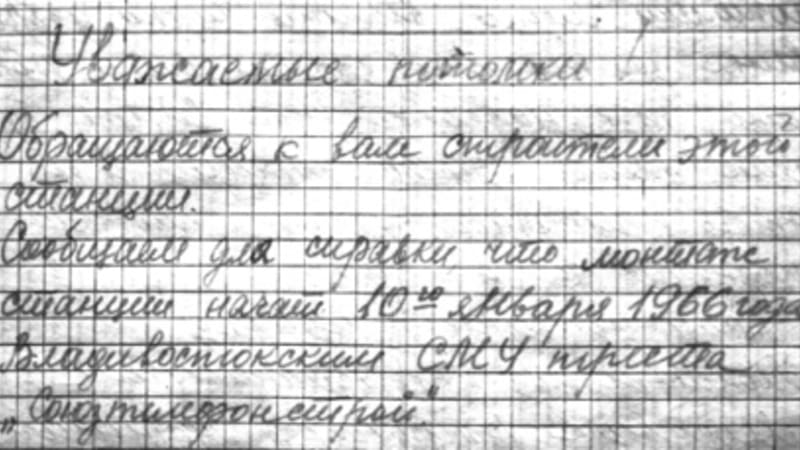 Уважаемые потомки!
Обращаются к вам строители этой
станции.
Сообщаем для справки, что монтаж
станции начат 10го января 1966 года
Владивостокским СМУ треста
„Союзтелефонстрой".